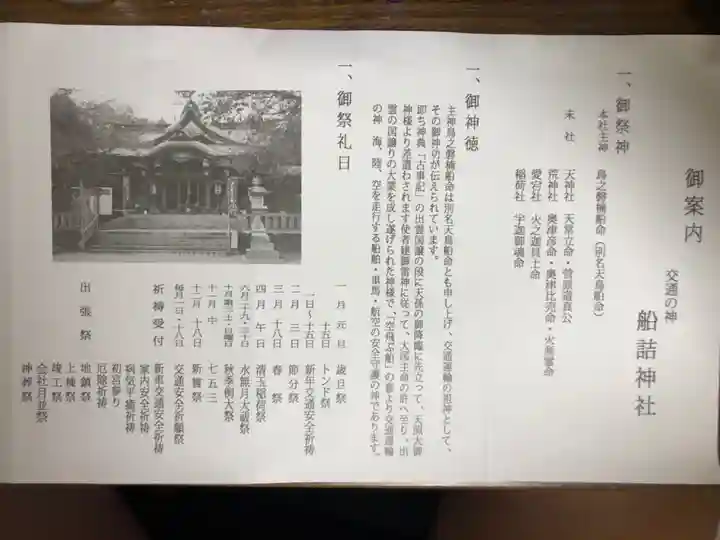 御案内
交通の神
船詰神社
一、御祭神
本社主神 鳥之磐楠船命(別名天鳥船命)
末社 天神社 天常立命・菅原道真公
荒神社 奥津彦命・奥津比売命・火産霊命
愛宕社 火之迦具土命
稲荷社 宇迦御魂命
一、御神徳
主神鳥之磐楠船命は別名天鳥船命とも申し上げ、交通運輸の祖神として、
その御神功が伝えられています。
即ち神典「古事記」の出雲国譲の段に天孫の御降臨に先立って、天照大御
神様より差遣わされます使者建御雷神に従って、大国主命の許へ至り、出
雲の国譲りの大業を成し遂げられた神様で、「空飛ぶ船」の御
より交通運輸
の神 海、陸、空を走行する船舶・車馬・航空の安全守護の神であります。
一、御祭礼日
一月元旦 歳旦祭
十五日 トンド祭
一日〜十五日 新年交通安全祈祷
二月三日 節分祭
三月十八日 春祭
四月午日 清玉稲荷祭
六月二十九・三十日 水無月大祓祭
十月 日曜日 秋季例大祭
十一月中 七五三
十二月十八日 新嘗祭
毎月一日・十八日 交通安全祈願祭
祈祷受付 新車交通安全祈祷
家内安全祈祷
病気平癒祈祷
初宮参り
厄除祈祷
出張祭 地鎮祭
上棟祭
竣工祭
会社月並祭
神葬祭